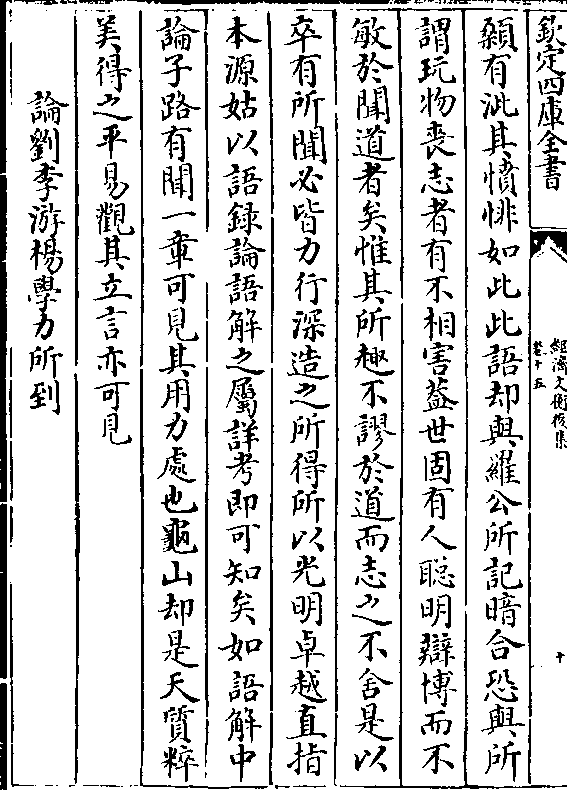 欽定四庫全書
經濟文衡後集
卷十五
十
顙有泚其憤悱如此此語却與羅公所記暗合恐與所
謂玩物喪志者有不相害葢世固有人聰明辯博而不
敏於聞道者矣惟其所趣不謬於道而志之不舍是以
卒有所聞必皆力行深造之所得所以光明卓越直指
本源姑以語録論語解之屬詳考即可知矣如語解中
論子路有聞一章可見其用力處也龜山却是天質粹
美得之平易觀其立言亦可見
論劉李游楊學力所到